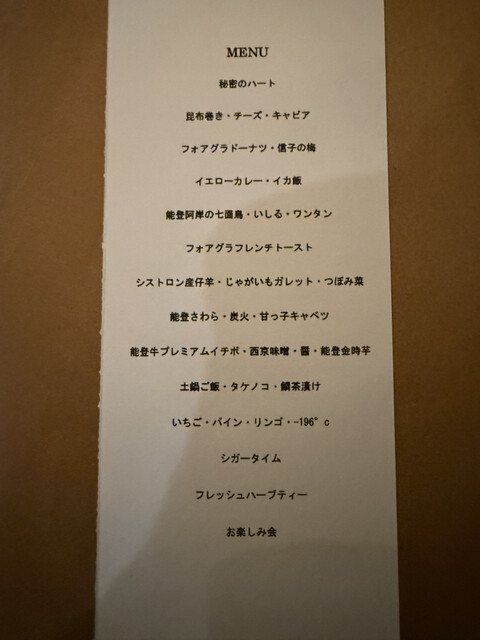 MENU
秘密のハート
昆布巻き・チーズ・キャビア
フォアグラドーナツ・信子の梅
イエローカレー・イカ飯
能登阿岸の七面鳥・いしる・ワンタン
フォアグラフレンチトースト
シストロン産仔羊・じゃがいもガレット・つぼみ菜
能登さわら・炭火・甘っ子キャベツ
能登牛プレミアムイチボ・西京味噌・醤・能登金時芋
土鍋ご飯・タケノコ・鯛茶漬け
いちご・パイン・リンゴ・-196°c
シガータイム
フレッシュハーブティー
お楽しみ会